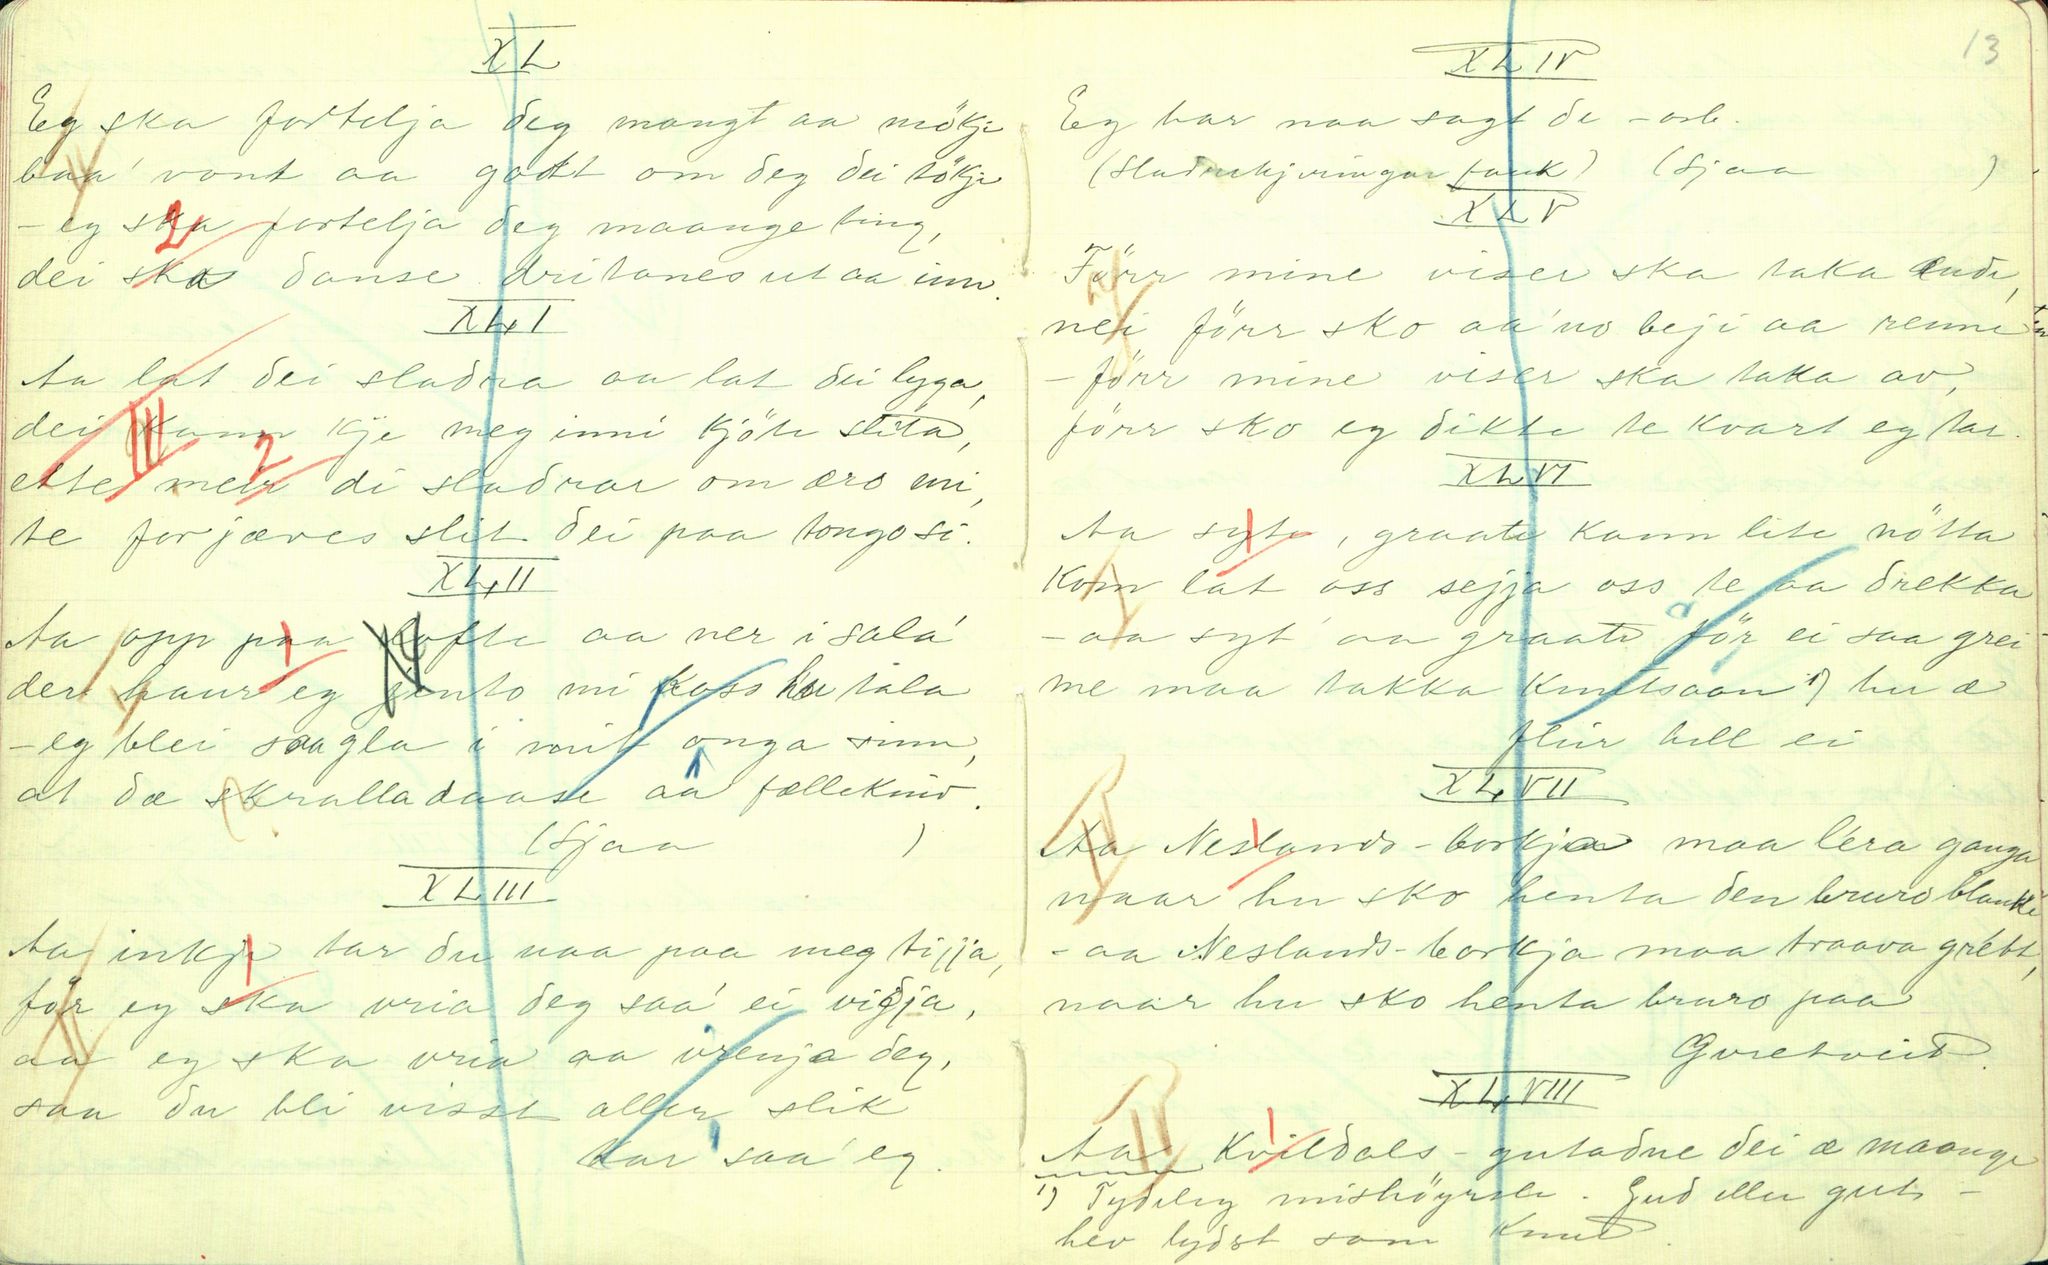 XL
Eg ska fortelja deg mangt aa mökje
baa' vont aa godt om deg dei tökje
- eg ska fortelja deg maange ting,
dei ska danse dritanes ut aa inn.
XLI
Aa lat dei sladra aa lat dei lyga,
dei kann kje meg inni kjöte slita,
ette meir di sladrar om æro mi,
te forjæves slit dei paa tongo si.
XLII
Aa opp paa lofte aa ner i sala'
der haur eg jento mi koss hu tala
- eg blei saagla i mit onga sinn,
at dæ skralladaase aa fællekinn.
(Sjaa )
XLIII
Aa inkje tar du naa paa meg tijja,
för eg ska vria deg saa' ei vidja,
aa eg ska vria aa vrenja deg,
saa du bli visst aller slik
kar saa' eg.
13
XLIV
Eg har naa sagt de - osb.
(Sladrekjeringar ) (Sjaa )
XLV
Förr mine viser ska taka ende,
nei förr sko aa'no beji aa renne
- förr mine viser ska taka av,
förr sko eg dikte te kvart eg tar.
XLVI
Aa syte, graate kann lite nötta
Kom lat oss sejja oss te aa drekka
- aa syt' aa graate för ei saa grei
me maa takka Knutsaan 1) hu æ
fleir hell ei
XLVII
Aa Neslands-borkja maa lera ganga
naar hu sko henta den bruro blanke
- aa Neslands-borkja maa traava grett,
naar hu sko henta bruro paa
Gvretveit.
XLVIII
Aa Kvildals-gutadne dei æ maange
1) Tydeleg mishöyrsle. Gud eller guts-
hev lydst som Knud.